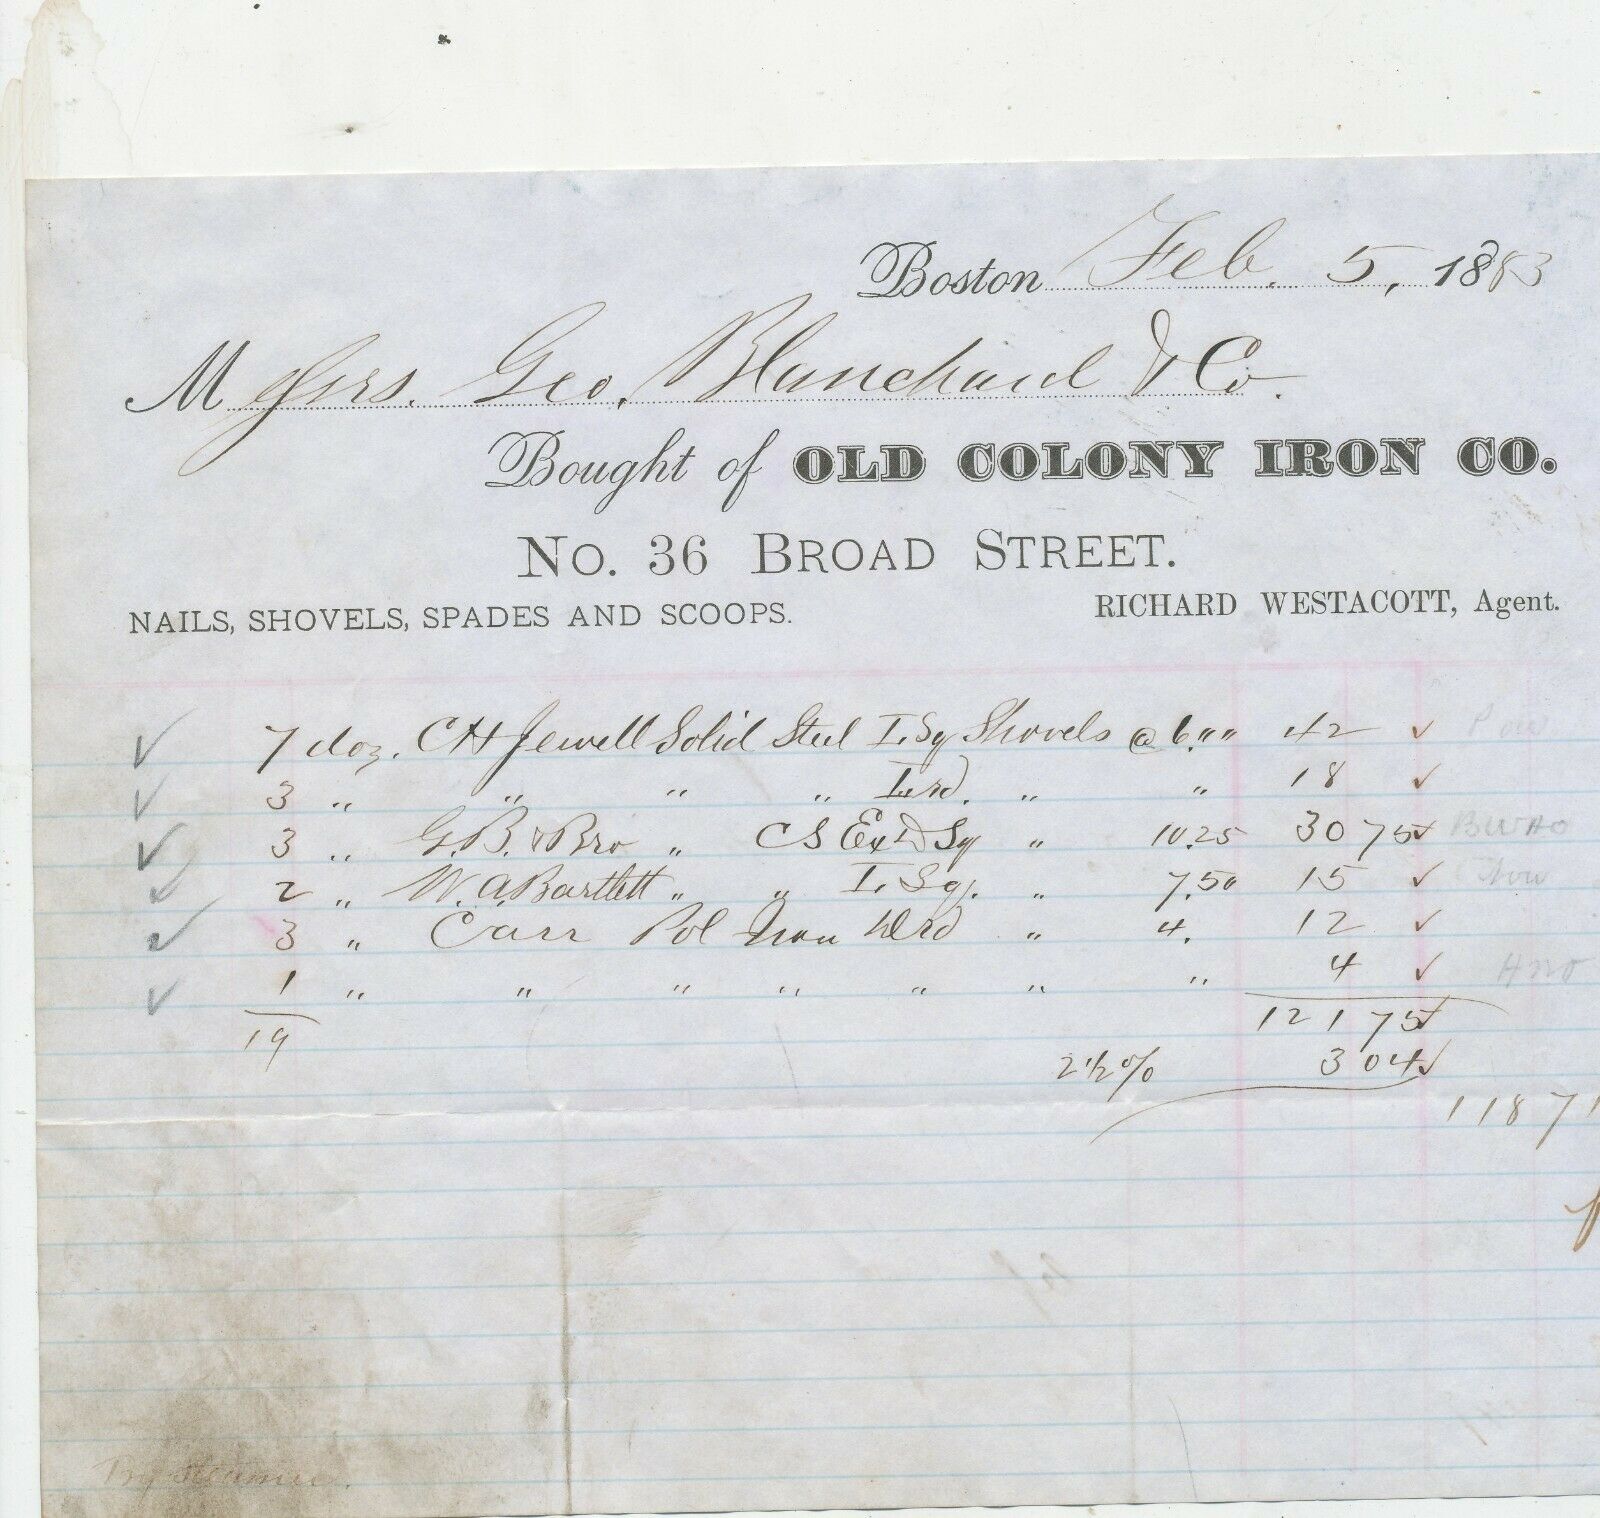 Boston Feb. 5, 1883
Messrs. Geo. Blanchard & Co.
Bought of OLD COLONY IRON CO.
No. 36 BROAD STREET.
NAILS, SHOVELS, SPADES AND SCOOPS. RICHARD WESTACOTT, Agent.
7 doz. CH Jewell Solid Steel L. Sq Shovels @ 6."" 42 ✓
3 " " " " L rd. " " 18 ✓
3 " G.B. & Bro " C S Ex D Sq " 10.25 30 75 ✓
2 " W. A. Bartlett " " L. Sq. " 7.50 15 ✓
3 " Carr Pol Iron D rd " 4. 12 ✓
1 " " " " " " " 4 ✓
19 121 75 ✓
2 1/2 % 3 04 ✓
118 71
By Steamer.